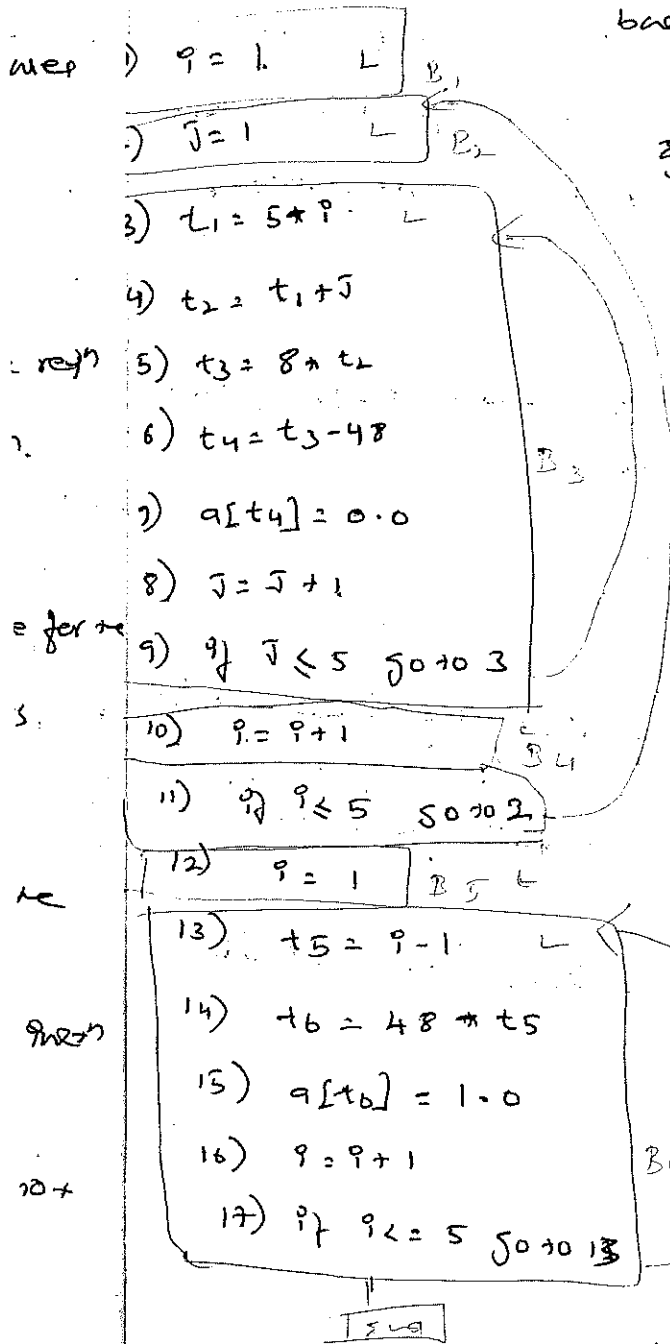 1) i = 1. L
B1
J = 1 L
B2
3) t1 = 5 * i L
4) t2 = t1 + J
5) t3 = 8 * t2
6) t4 = t3 - 48
7) a[t4] = 0.0
B3
8) J = J + 1
9) if J ≤ 5 go to 3
10) i = i + 1 L
B4
11) if i ≤ 5 go to 2
12) i = 1 B5 L
13) t5 = i - 1 L
14) t6 = 48 * t5
15) a[t6] = 1.0
16) i = i + 1
17) if i <= 5 go to 13